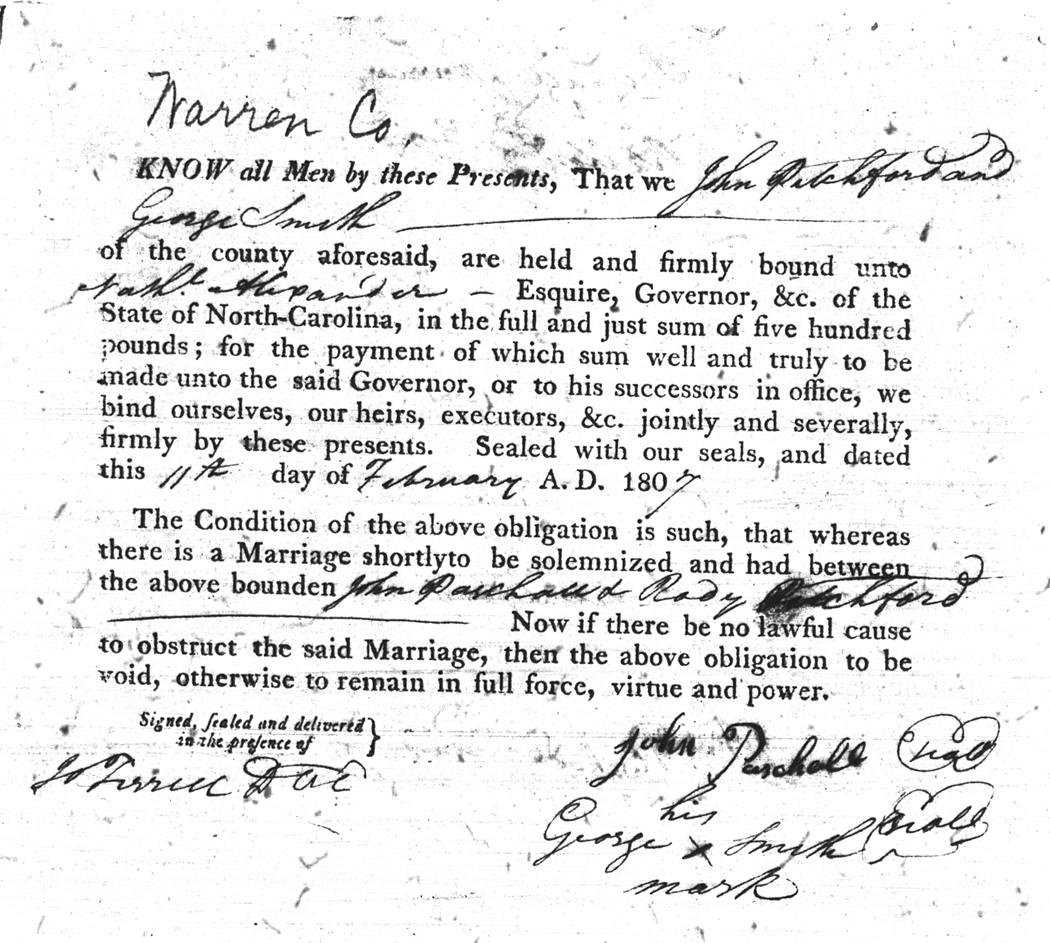 Warren Co,
KNOW all Men by these Presents, That we John Pitchford and
George Smith
of the county aforesaid, are held and firmly bound unto
Nathl. Alexander – Esquire, Governor, &c. of the
State of North-Carolina, in the full and just sum of five hundred
pounds; for the payment of which sum well and truly to be
made unto the said Governor, or to his successors in office, we
bind ourselves, our heirs, executors, &c. jointly and severally,
firmly by these presents. Sealed with our seals, and dated
this 11th day of February A. D. 1807
The Condition of the above obligation is such, that whereas
there is a Marriage shortlyto be solemnized and had between
the above bounden John Paschall & Rody Pitchford
Now if there be no lawful cause
to obstruct the said Marriage, then the above obligation to be
void, otherwise to remain in full force, virtue and power.
Signed, ſealed and delivered }
in the preſence of
Jo Terrell
John Paschall (seal)
his
George x Smith (seal)
mark